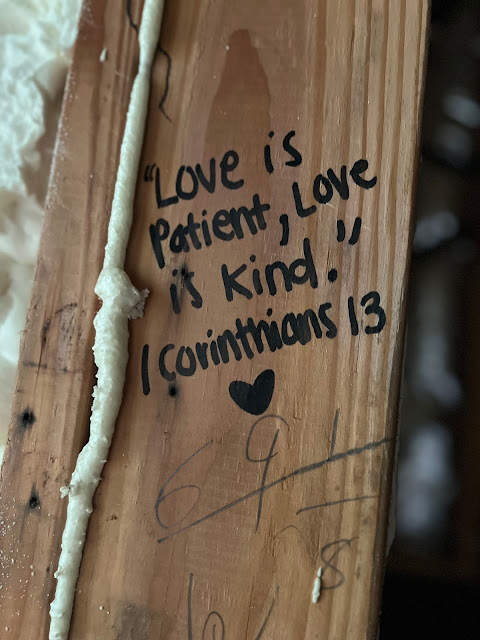 "Love is
Patient, Love
is Kind."
1 Corinthians 13